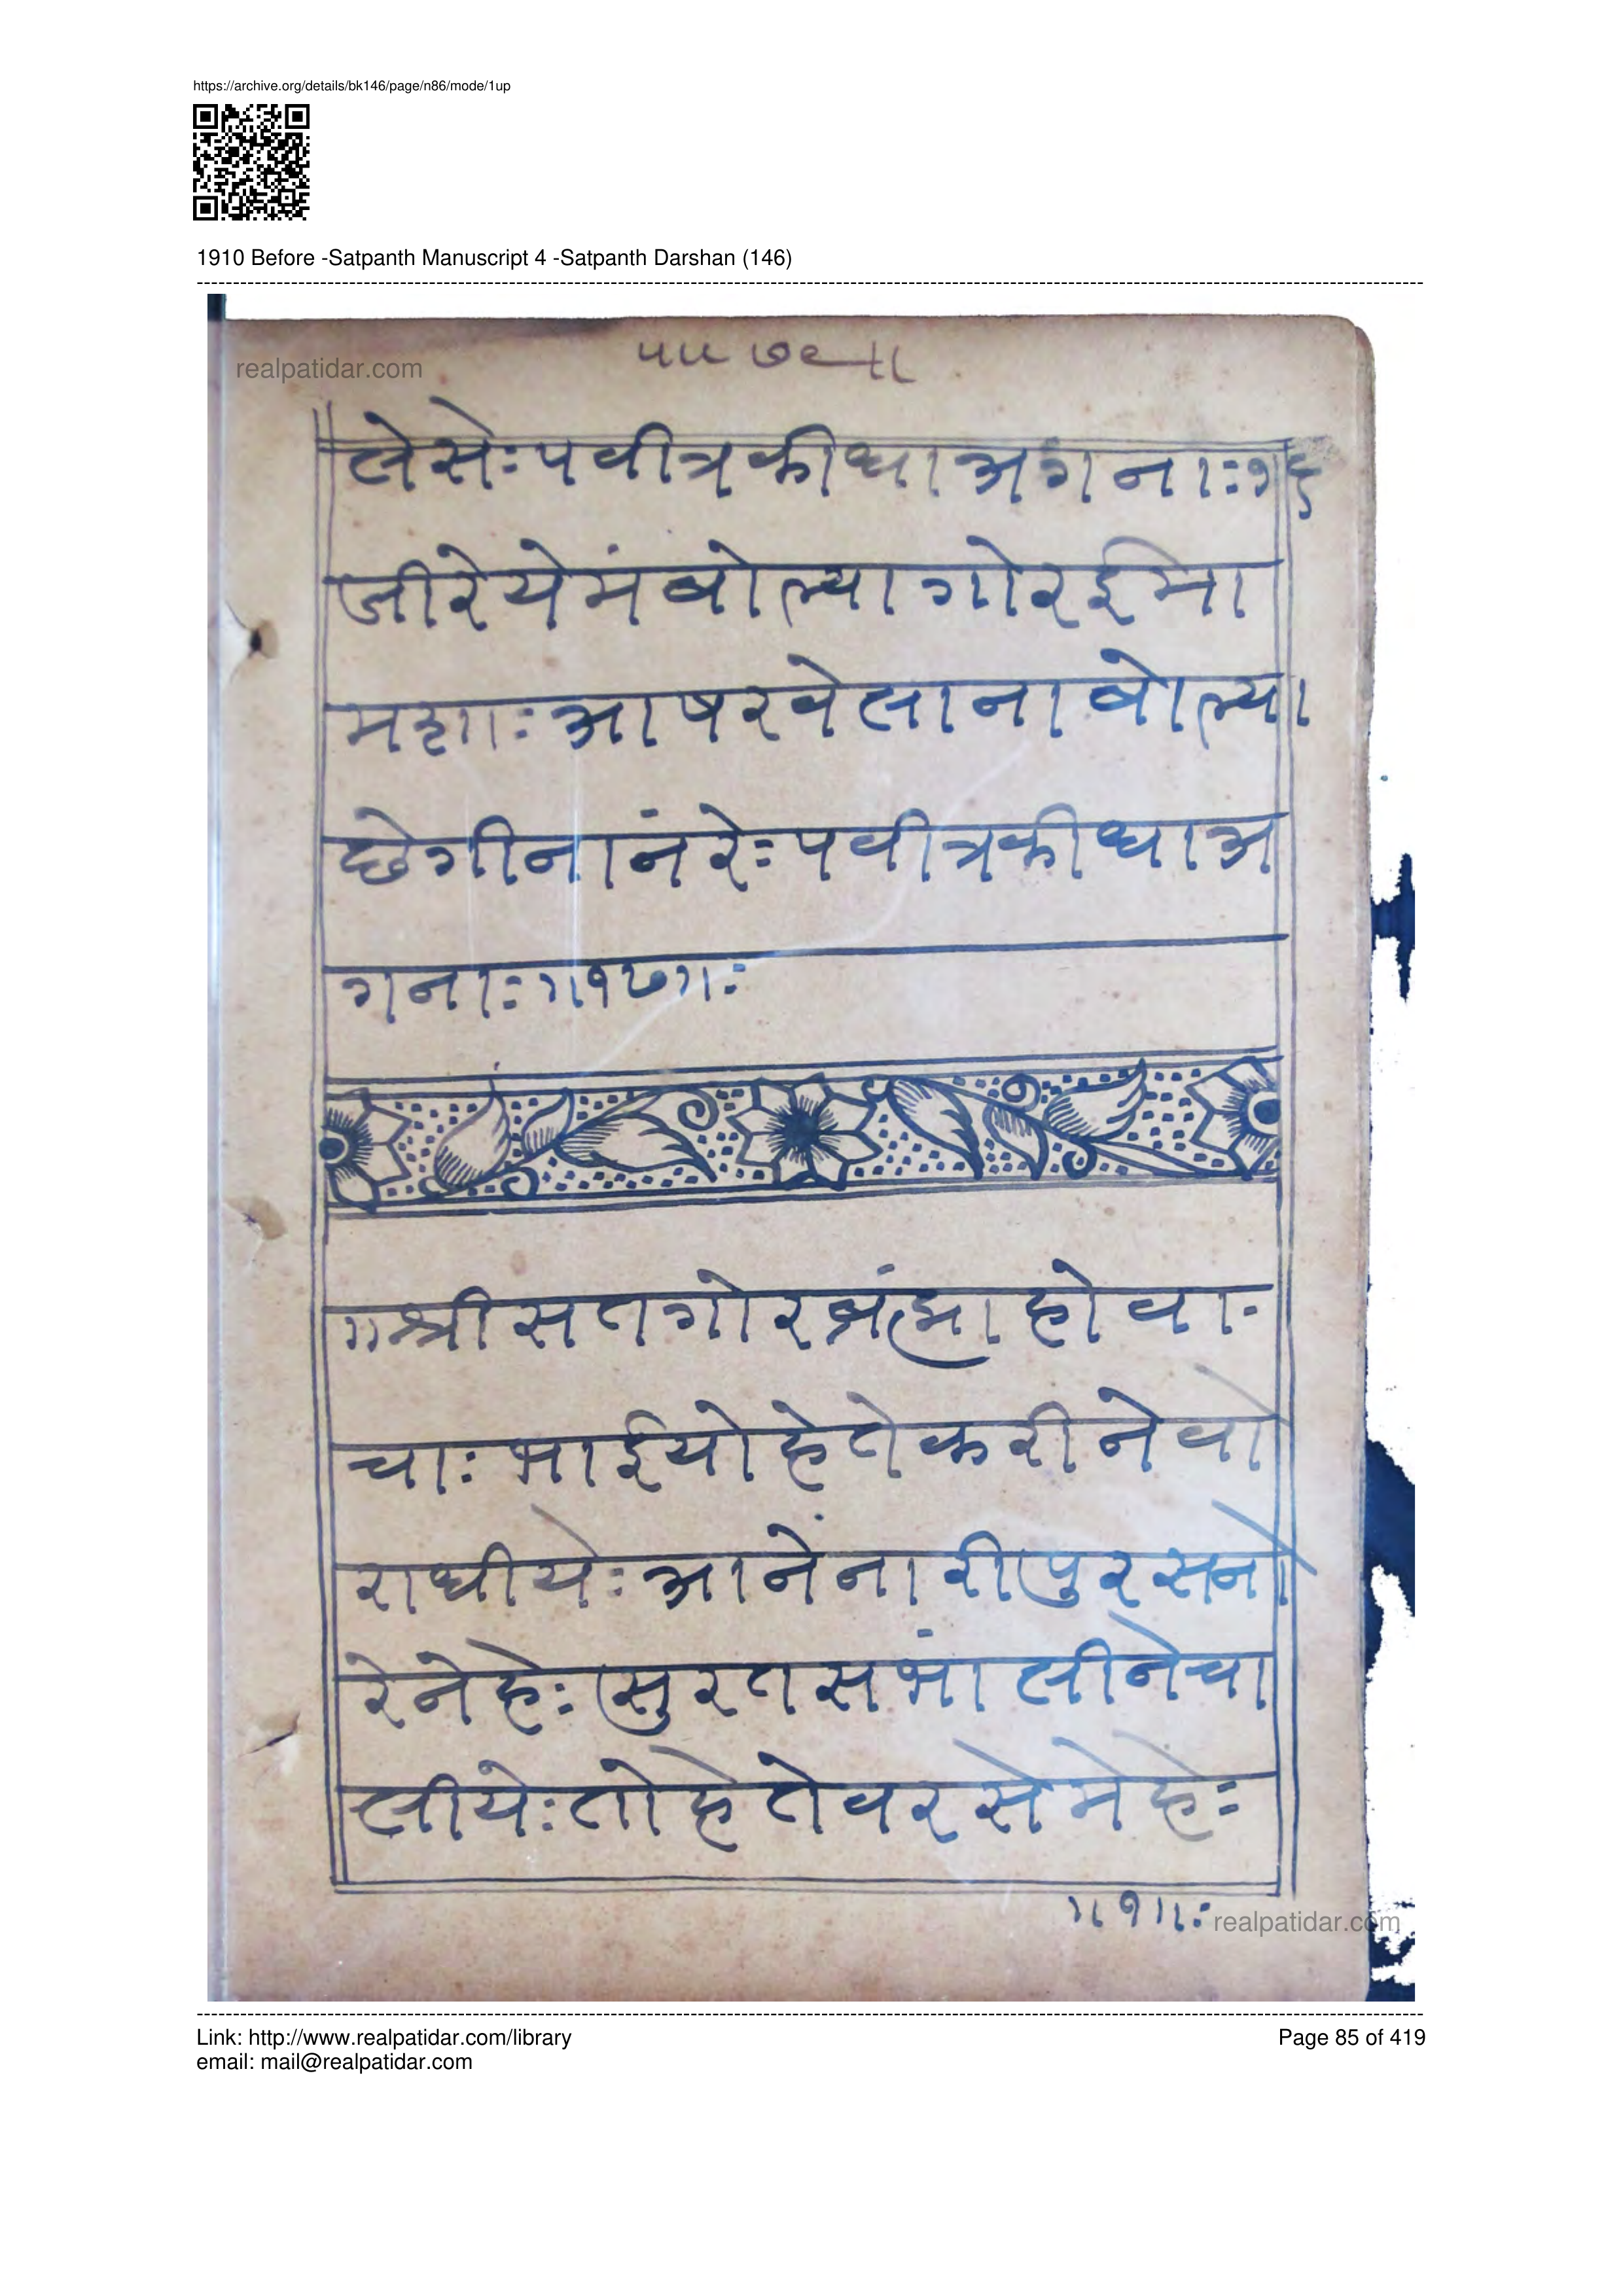 https://archive.org/details/bk146/page/n86/mode/1up
1910 Before -Satpanth Manuscript 4 -Satpanth Darshan (146)
realpatidar.com
लेसेः पवीत्र कीधा अगनाः १६
जीरे येमं बोल्या गोर ईमा
मशाः आषर वेलाना बोल्या
छे गीनांन रेः पवीत्र कीधा अ
गनाः ॥१७॥ः
॥श्री सतगोर ब्रंह्मा हो वा-
चाः भाईयो हेते करीने वो
राधीयेः आनें नारी पुरसनो
रे नेहेः सुरत सभांलीने चा
लीयेः तो हेते वरसे मेहेः
॥१॥ः
realpatidar.com
Link: http://www.realpatidar.com/library
email: mail@realpatidar.com
Page 85 of 419